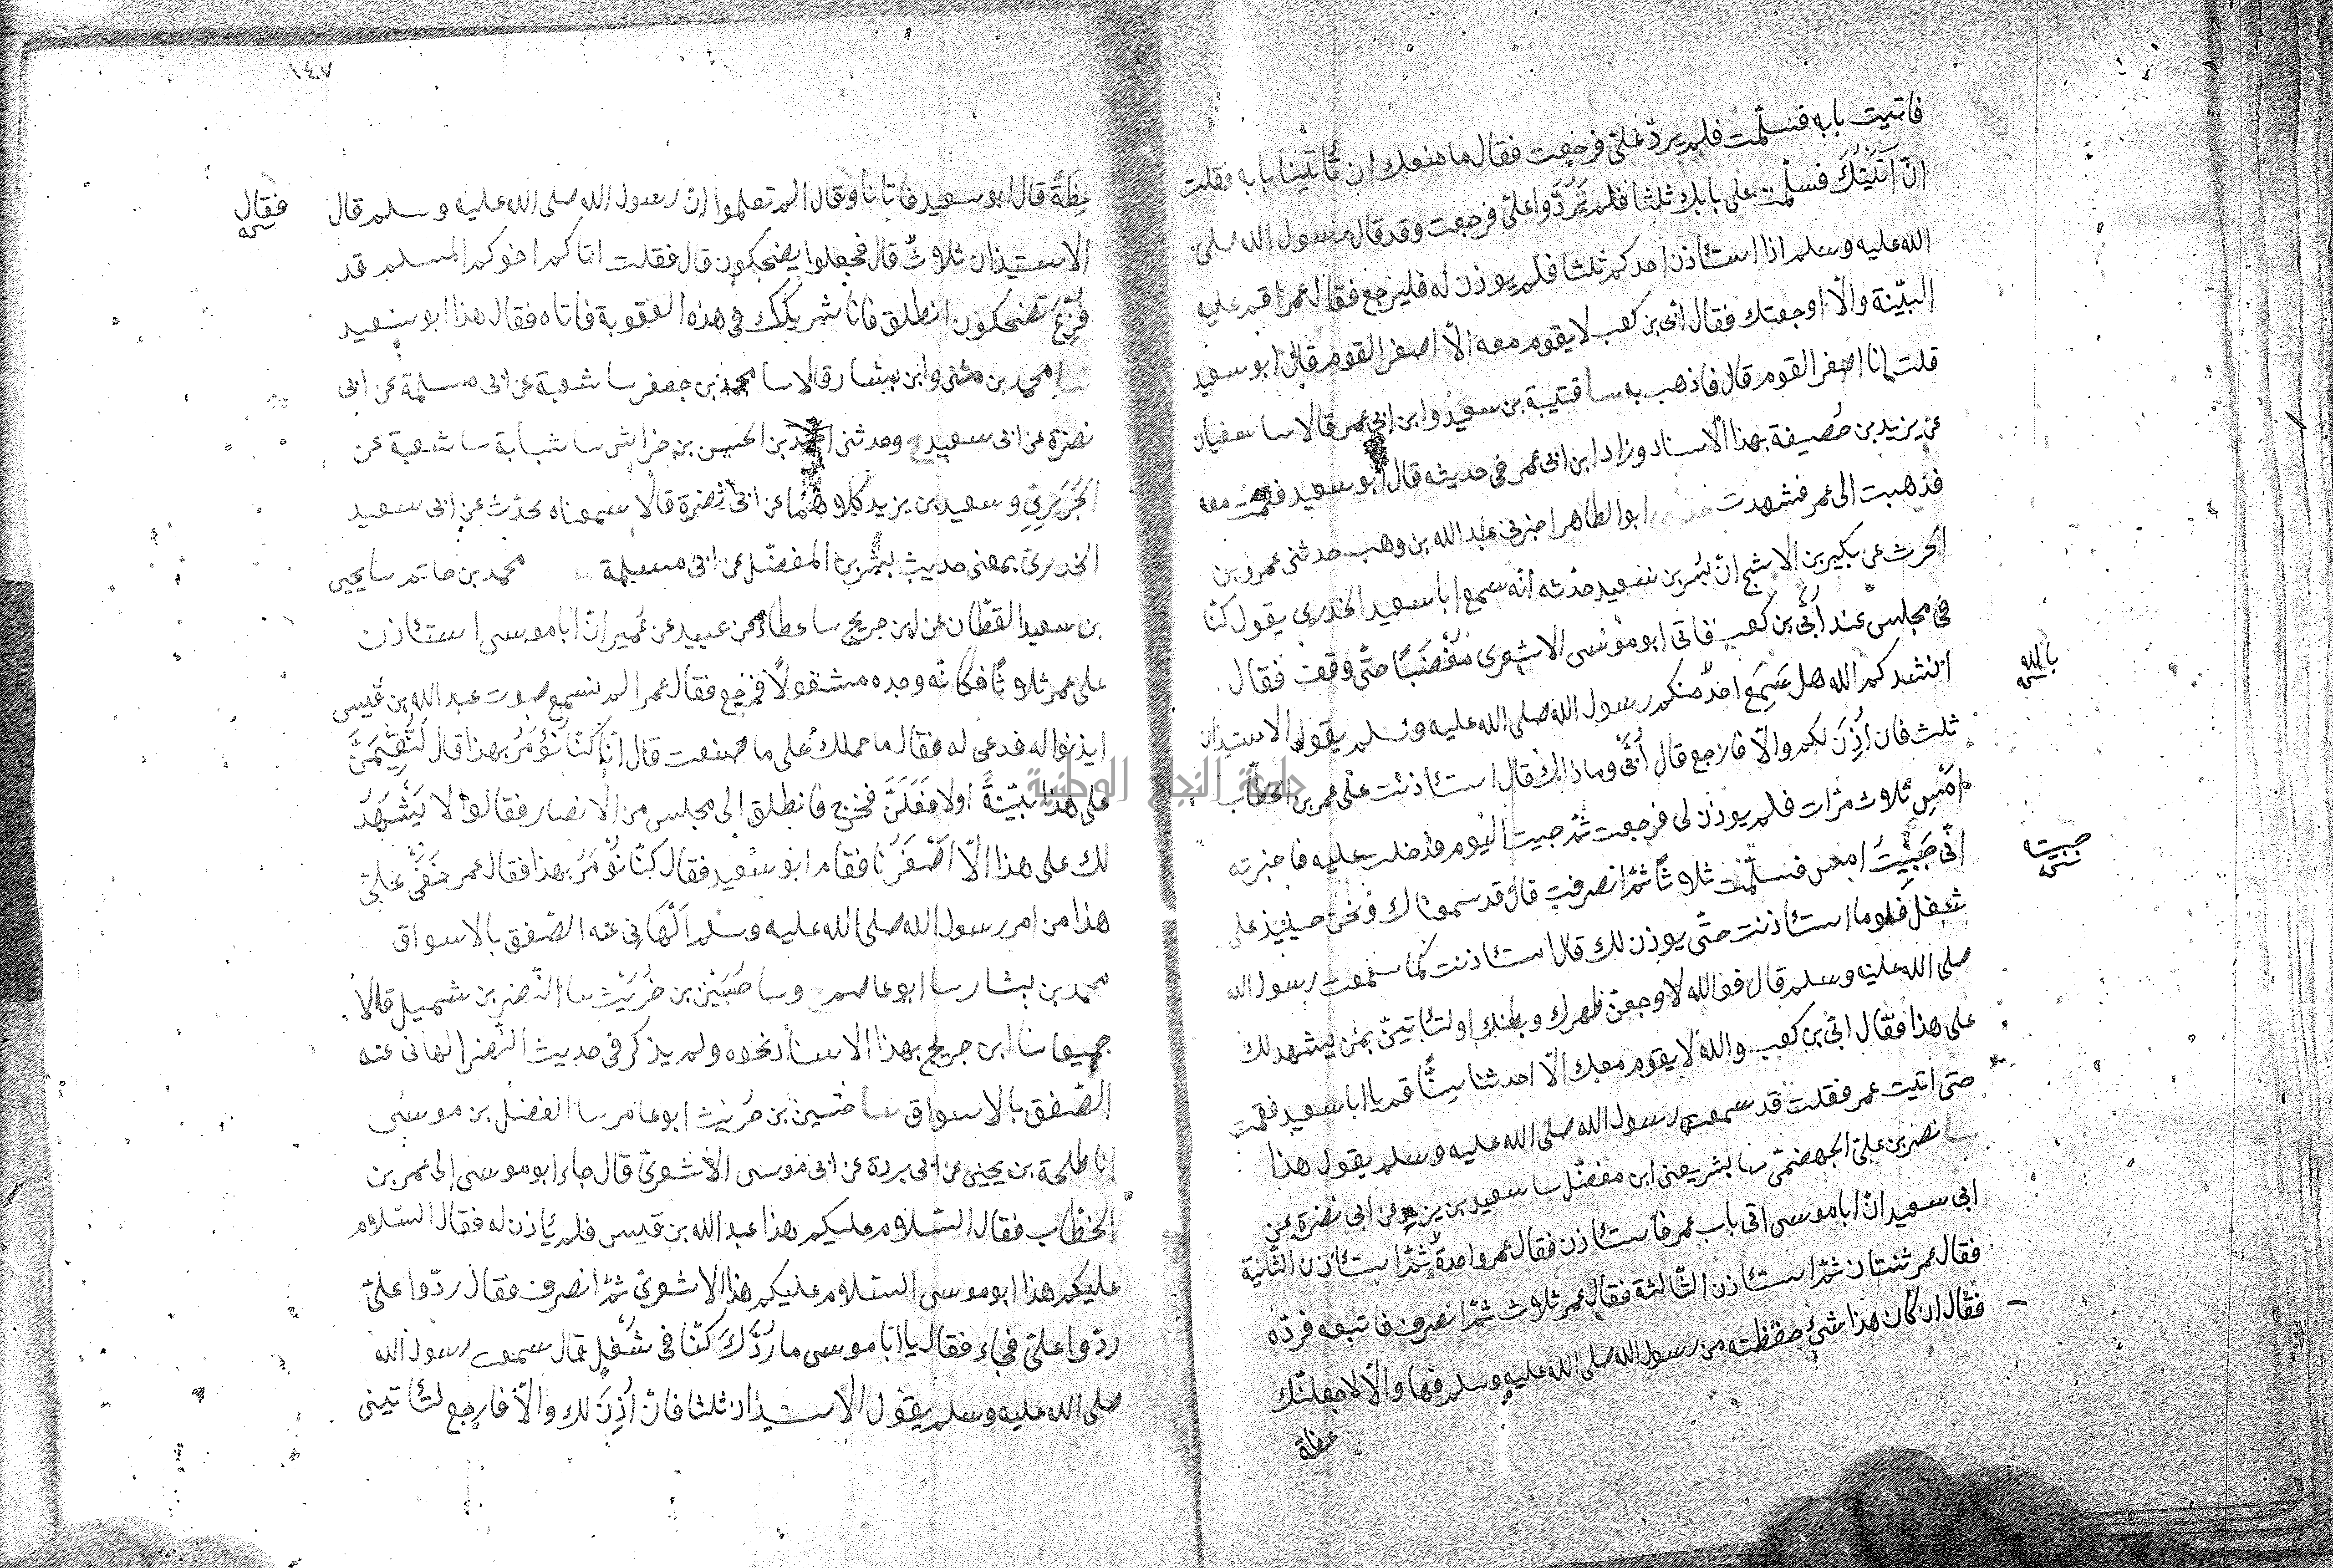 فاتيت بابه فسلّمت فلم يردّ عليّ فرجعت فقال ما منعك ان تأتينا بابه فقلت
انّ اتَيْتُكَ فسلّمت على بابك ثلثا فلم يَرُدّوا عليّ فرجعت وقد قال رسول الله صلى
الله عليه وسلم اذا استأذن احدكم ثلثا فلم يوذن له فليرجع فقال عمر اقم عليه
البيّنة والّا اوجعتك فقال ابي بن كعب لا يقوم معه الّا اصغر القوم قال ابو سعيد
قلت انا اصغر القوم قال فاذهب به سا قتيبة بن سعيد وابن ابي عمر قالا سا سفيان
عن يزيد بن خُصيفة بهذا الاسناد وزاد ابن ابي عمر في حديثه قال ابو سعيد فقمت معه
فذهبت الى عمر فشهدت حدثني ابو الطاهر اخبرني عبد الله بن وهب حدثني عمرو بن
الحرث عن بكير بن الاشج انّ بُسر بن سعيد حدّثه انّه سمع ابا سعيد الخدري يقول كنّا
في مجلس عند اُبَيّ بن كعب فاتى ابو موسى الاشعري مُغْضَبًا حتّى وقف فقال
انشدكم الله هل سَمِع احدٌ منكم رسول الله صلى الله عليه وسلم يقول الاستيذان
بالله
ثلث فان اُذِنَ لكم والّا فارجع قال اُبَيّ وما ذاك قال استئاذنت على عمر بن الخطّاب
امْسِ ثلاث مرّات فلم يوذن لي فرجعت ثمّ جيت اليوم فدخلت عليه فاخبرته
انّي جَيْيتُ امس فسلّمت ثلاثًا ثمّ انصرفت قال قد سمعناك ونحن حينئيذ على
جيته
شغل فلوما استئاذنت حتّى يوذن لك قال استئاذنت كما سمعت رسول الله
صلى الله عليه وسلم قال فوالله لاوجعنّ ظهرك وبطنك او لتئاتينّ بمن يشهد لك
على هذا فقال ابيّ بن كعب والله لا يقوم معك الّا احدثنا سِنًّا قم يا ابا سعيد فقمت
حتى اتيت عمر فقلت قد سمعت رسول الله صلى الله عليه وسلم يقول هذا
سا نصر بن عليّ الجهضميّ سا بشر يعني ابن مفضّل سا سعيد بن يزيد عن ابي نضرة عن
ابي سعيد انّ ابا موسى اتى باب عمر فاستئاذن فقال عمر واحدةٌ ثمّ استئاذن الثّانية
فقال عمر ثنتان ثمّ استئاذن الثّالثة فقال عمر ثلاث ثمّ انصرف فاتبعه فردّه
فقال ان كان هذا شئ حفظته من رسول الله صلى الله عليه وسلم فها والّا لاجعلنّك
عظة
١٤٧
عِظَةً قال ابو سعيد فاتانا وقال الم تعلموا انّ رسول الله صلى الله عليه وسلم قال
فقال
الاستيذان ثلاثٌ قال فجعلوا يضحكون قال فقلت اتاكم اخوكم المسلم قد
فُزِّعَ تضحكون انطلق فانا شريكك في هذه العقوبة فاتاه فقال هذا ابو سعيد
سا محمد بن مثنى وابن بشار قالا سا محمد بن جعفر سا شعبة عن ابي مسلمة عن ابي
نضرة عن ابي سعيد ح وحدثني احمد بن الحسن بن خراش سا شبابة سا شعبة عن
الجُرَيري وسعيد بن يزيد كلاهما عن ابي نضرة قالا سمعناه يحدّث عن ابي سعيد
الخدريّ بمعنى حديث بشر بن المفضّل عن ابي مسلمة محمد بن حاتم سا يحيى
بن سعيد القطّان عن ابن جريج سا عطاء عن عبيد عن عُمير انّ ابا موسى استئاذن
على عمر ثلاثًا فكانّه وجده مشغولًا فرجع فقال عمر الم نسمع صوت عبد الله بن قيس
ايذنوا له فدعي له فقال ما حملك على ما صنعت قال انّا كنّا نُؤمَرُ بهذا قال لَتُقِيمَنَّ
على هذا بيّنةً او لافعلنّ فخرج فانطلق الى مجلس من الانصار فقالوا لا يَشْهَدُ
لك على هذا الّا اَصْغَرُنا فقام ابو سعيد فقال كنّا نُؤمَرُ بهذا فقال عمر خَفِيَ عليّ
هذا من امر رسول الله صلى الله عليه وسلم اَلْهاني عنه الصّفق بالاسواق
محمد بن بشار سا ابو عاصم وسا حُسَيْن بن حُرَيْث سا النّضر بن شميل قالا
جميعا سا ابن جريج بهذا الاسناد نحوه ولم يذكر في حديث النّضر الهاني عنه
الصّفق بالاسواق سا حسين بن حُريث ابو عامر سا الفضل بن موسى
انا طلحة بن يحيى عن ابي بردة عن ابي موسى الاشعريّ قال جاء ابو موسى الى عمر بن
الخطّاب فقال السّلام عليكم هذا عبد الله بن قيس فلم يأذن له فقال السّلام
عليكم هذا ابو موسى السّلام عليكم هذا الاشعريّ ثمّ انصرف فقال ردّوا عليّ
ردّوا عليّ فجاء فقال يا ابا موسى ما ردَّكَ كنّا في شُغْلٍ قال سمعت رسول الله
صلى الله عليه وسلم يقول الاستيذان ثلثا فان اُذِنَ لك والّا فارجع لتئاتينى
جامعة النجاح الوطنية